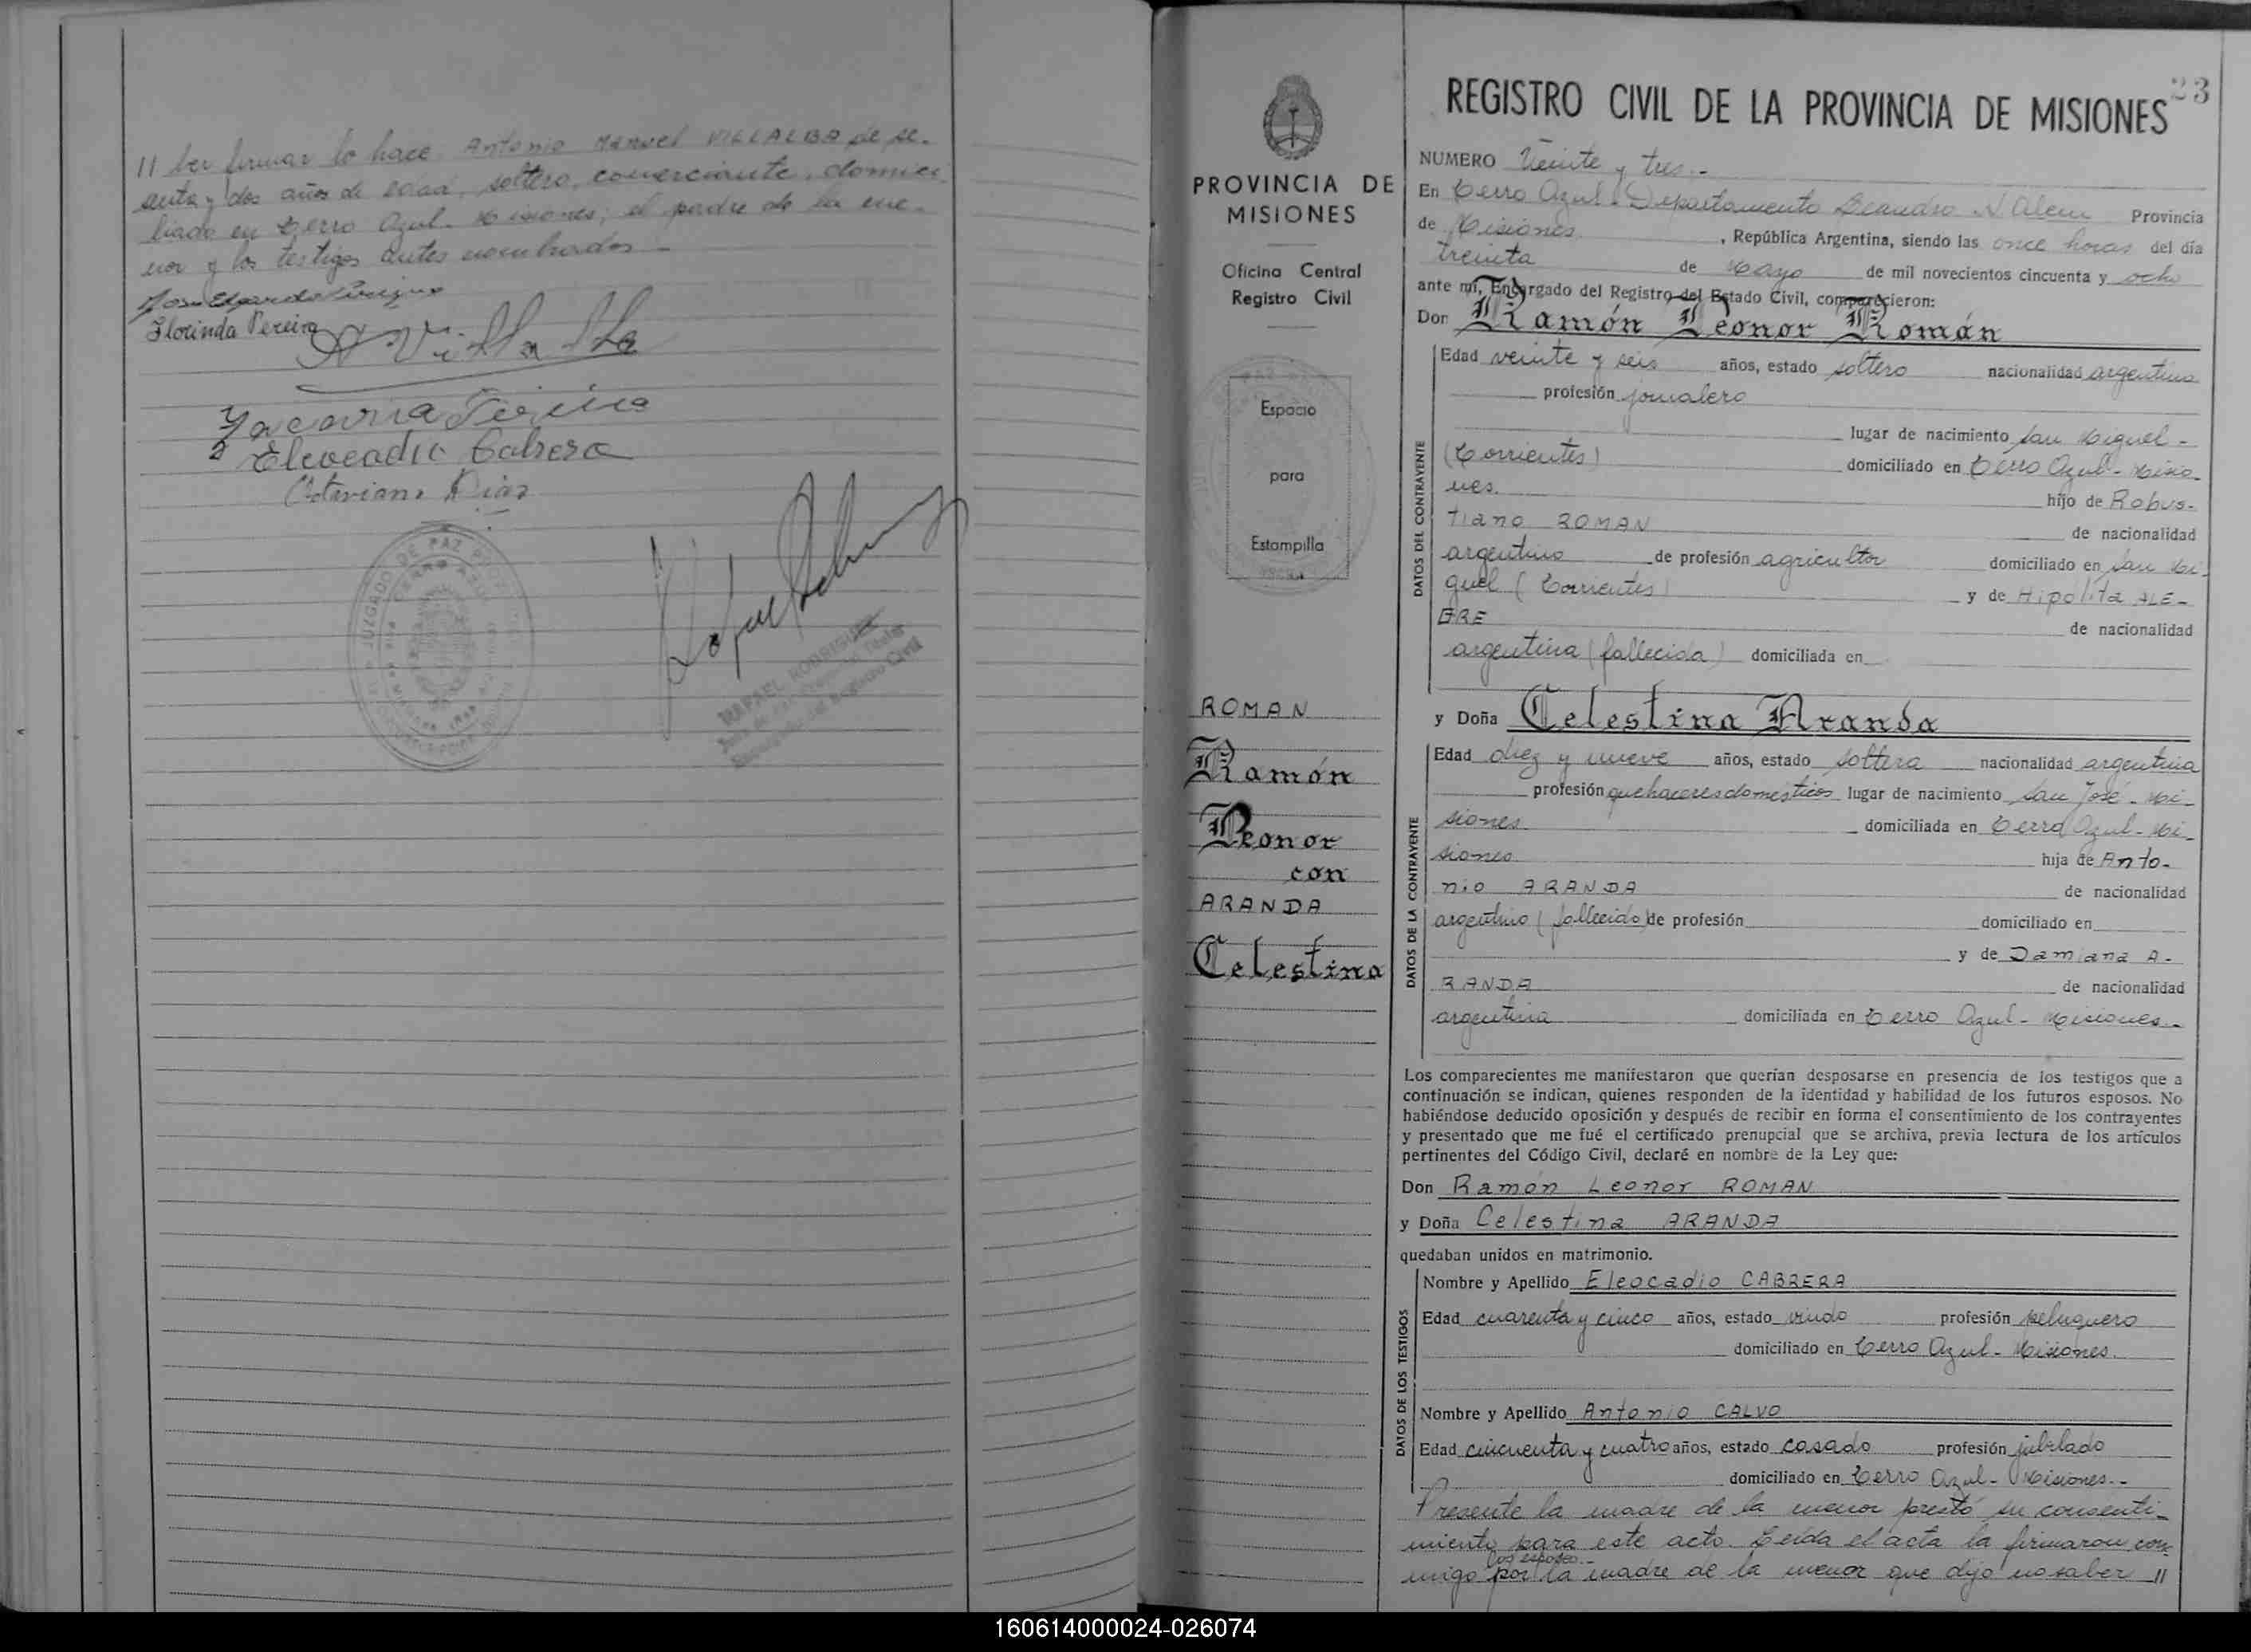 // ber firmar lo hace Antonio Manuel VILLALBA de se-
enta y dos años de edad, soltero, comerciante, domici-
liado en Cerro Azul- Misiones; el padre de la me-
nor y los testigos antes nombrados -
Florinda Pereira
Eleocadio Cabrera
JUZGADO DE PAZ
CERRO AZUL
RAFAEL RODRIGUEZ
23
REGISTRO CIVIL DE LA PROVINCIA DE MISIONES
PROVINCIA DE
MISIONES
Oficina Central
Registro Civil
Espacio
para
Estampilla
ROMAN
Ramón
Leonor
con
ARANDA
Celestina
NUMERO Veinte y tres.-
En Cerro Azul- Departamento Leandro N Alem Provincia
de Misiones , República Argentina, siendo las once horas del día
treinta de Mayo de mil novecientos cincuenta y ocho
ante mí, Encargado del Registro del Estado Civil, comparecieron:
Don Ramón Leonor Román
DATOS DEL CONTRAYENTE
Edad veinte y seis años, estado soltero nacionalidad argentina
profesión jornalero
lugar de nacimiento San Miguel -
(Corrientes) domiciliado en Cerro Azul- Misio-
nes. hijo de Robus-
tiano ROMAN de nacionalidad
argentino de profesión agricultor domiciliado en San Mi-
guel (Corrientes) y de Hipolita ALE-
GRE de nacionalidad
argentina (fallecida) domiciliada en
y Doña Celestina Aranda
DATOS DE LA CONTRAYENTE
Edad diez y nueve años, estado soltera nacionalidad argentina
profesión quehaceres domesticos lugar de nacimiento San José- Mi-
siones. domiciliada en Cerro Azul- Mi-
siones hija de Anto-
nio ARANDA de nacionalidad
argentino (fallecido) de profesión domiciliado en
y de Damiana A-
RANDA de nacionalidad
argentina domiciliada en Cerro Azul- Misiones.-
Los comparecientes me manifestaron que querían desposarse en presencia de los testigos que a
continuación se indican, quienes responden de la identidad y habilidad de los futuros esposos. No
habiéndose deducido oposición y después de recibir en forma el consentimiento de los contrayentes
y presentado que me fué el certificado prenupcial que se archiva, previa lectura de los artículos
pertinentes del Código Civil, declaré en nombre de la Ley que:
Don Ramón Leonor ROMAN
y Doña Celestina ARANDA
quedaban unidos en matrimonio.
DATOS DE LOS TESTIGOS
Nombre y Apellido Eleocadio CABRERA
Edad cuarenta y cinco años, estado viudo profesión peluquero
domiciliado en Cerro Azul- Misiones.
Nombre y Apellido Antonio CALVO
Edad cincuenta y cuatro años, estado casado profesión jubilado
domiciliado en Cerro Azul- Misiones.-
Presente la madre de la menor prestó su consenti-
miento para este acto. Leida el acta la firmaron con-
los esposos-
migo por la madre de la menor que dijo no saber //
160614000024-026074